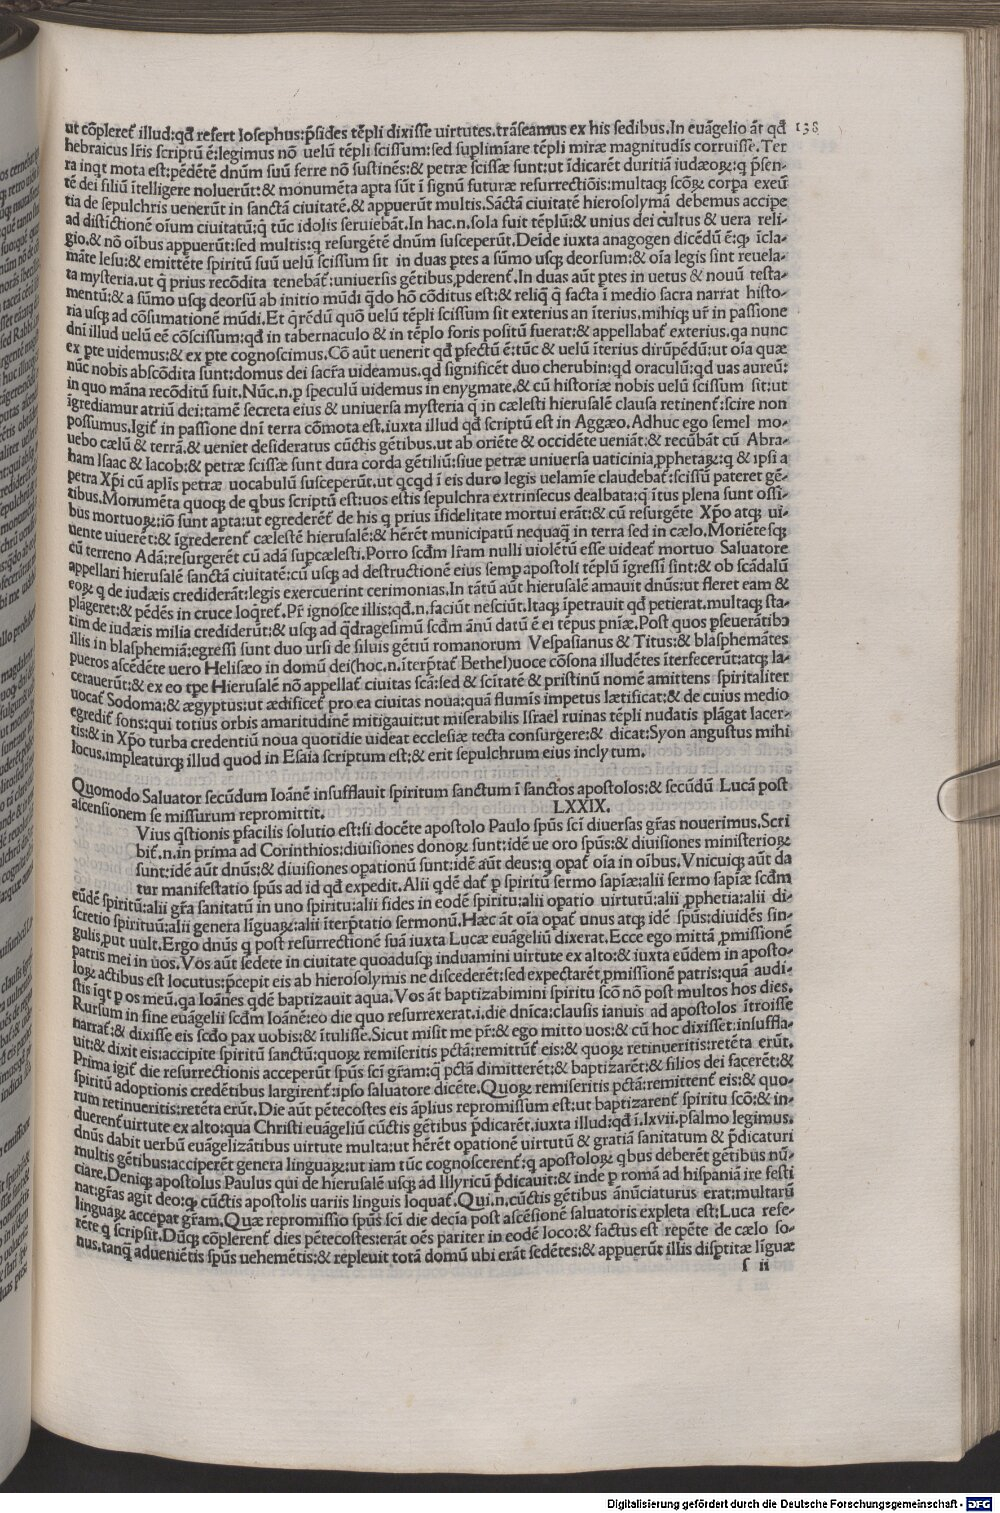 ut cōpleret᷑ illud:qđ refert Iosephus:p̄sides tēpli dixisse uirtutes.trāseamus ex his sedibus.In euāgelio āt qđ 138
hebraicus lr̄is scriptū ē:legimus nō uelū tēpli scissum:sed supliminare tēpli miræ magnitudīs corruisse.Ter
ra inqt mota est:pēdētē dnūm suū ferre nō sustinēs:& petræ scissæ sunt:ut īdicarēt duritiā iudæoꝝ:q p̄sen-
tē dei filiū ītelligere noluerūt:& monumēta apta sūt ī signū futuræ resurrectiōis:multaqꝫ scōꝝ corpa exeū
tia de sepulchris uenerūt in sanctā ciuitatē.& appuerūt multis.Sāctā ciuitatē hierosolymā debemus accipe
ad distictionē oīum ciuitatū:q tūc idolis seruiebāt.In hac.n.sola fuit tēplū:& unius dei cultus & uera reli-
gio.& nō oībus appuerūt:sed multis:q resurgētē dnūm susceperūt.Deīde iuxta anagogen dicēdū ē:ꝙ īcla-
māte Iesu:& emittēte spiritū suū uelū scissum sit in duas ptes a sūmo usqꝫ deorsum:& oīa legis sint reuela-
ta mysteria.ut q̄ prius recōdita tenebāt᷑:uniuersis gētibus ꝓderent᷑.In duas aūt ptes in uetus & nouū testa-
mentū:& a sūmo usqꝫ deorsū ab initio mūdi q̄do hō cōditus est:& reliq̄ q̄ facta ī medio sacra narrat histo-
ria usqꝫ ad cōsumationē mūdi.Et q̄rēdū quō uelū tēpli scissum sit exterius an īterius.mihiqꝫ ur̄ in passione
dnī illud uelū eē cōscissum:qđ in tabernaculo & in tēplo foris positū fuerat:& appellabat᷑ exterius.qa nunc
ex pte uidemus:& ex pte cognoscimus.Cō aūt uenerit qđ pfectū ē:tūc & uelū īterius dirūpēdū:ut oīa quæ
nūc nobis abscōdita sunt:domus dei sacr̄a uideamus.qd significēt duo cherubin:qd oraculū:qd uas aureū:
in quo māna recōditū fuit.Nūc.n.p speculū uidemus in enygmate.& cū historiæ nobis uelū scissum sit:ut
īgrediamur atriū dei:tamē secreta eius & uniuersa mysteria q̄ in cælesti hierusalē clausa retinent᷑:scire non
possumus.Igit᷑ in passione dnī terra cōmota est.iuxta illud qđ scriptū est in Aggæo.Adhuc ego semel mo-
uebo cælū & terrā.& ueniet desideratus cūctis gētibus.ut ab oriēte & occidēte ueniāt:& recūbāt cū Abra-
ham Isaac & Iacob:& petræ scissæ sunt dura corda gētiliū:siue petræ uniuersa uaticinia ꝓphetaꝝ:q & ipsi a
petra Xp̄i cū apl̄is petræ uocabulū susceperūt.ut qcqd ī eis duro legis uelamīe claudebat᷑:scissū pateret gē-
tibus.Monumēta quoqꝫ de qbus scriptū est:uos estis sepulchra extrinsecus dealbata:q̄ ītus plena sunt ossi-
bus mortuoꝝ:iō sunt apta:ut egrederēt᷑ de his q prius īfidelitate mortui erāt:& cū resurgēte Xp̄o atqꝫ ui-
uente uiuerēt:& īgrederent᷑ cælestē hierusalē:& hērēt municipatū nequaq̄ in terra sed in cælo.Moriētesqꝫ
cū terreno Adā:resurgerēt cū adā supcælesti.Porro scdm lr̄am nulli uiolētū esse uideat᷑ mortuo Saluatore
appellari hierusalē sanctā ciuitatē:cū usqꝫ ad destructionē eius semp apostoli tēplū īgressī sint:& ob scādalū
eoꝝ q de iudæis crediderāt:legis exercuerint cerimonias.In tātū aūt hierusalē amauit dnūs:ut fleret eam &
plāgeret:& pēdēs in cruce loq̄ret᷑.Pr̄ ignosce illis:qđ.n.faciūt nesciūt.Itaqꝫ īpetrauit qđ petierat.multaqꝫ sta-
tim de iudæis milia crediderūt:& usqꝫ ad q̄dragesimū scdm ānū datū ē ei tēpus pniæ.Post quos pseuerātibꝫ
illis in blasphemiā:egressi sunt duo ursi de siluis gētiū romanorum Vespasianus & Titus:& blasphemātes
pueros ascēdēte uero Helisæo in domū dei(hoc.n.īterp̄tat᷑ Bethel)uoce cōsona illudētes īterfecerūt:atqꝫ la-
cerauerūt:& ex eo tpe Hierusalē nō appellat᷑ ciuitas scā:sed & scītatē & pristinū nomē amittens spiritaliter
uocat᷑ Sodoma:& ægyptus:ut ædificet᷑ pro ea ciuitas noua:quā flumīs impetus lætificat:& de cuius medio
egredit᷑ fons:qui totius orbis amaritudinē mitigauit:ut miserabilis Israel ruinas tēpli nudatis plāgat lacer-
tis:& in Xp̄o turba credentiū noua quotidie uideat ecclesiæ tecta consurgere:& dicat:Syon angustus mihi
locus.impleaturqꝫ illud quod in Esaia scriptum est:& erit sepulchrum eius inclytum.
Quomodo Saluator secūdum Ioānē insufflauit spiritum sanctum ī sanctos apostolos:& secūdū Lucā post
ascensionem se missurum repromittit. LXXIX.
Vius q̄stionis pfacilis solutio est:si docēte apostolo Paulo spūs scī diuersas gr̄as nouerimus.Scri
bit᷑.n.in prima ad Corinthios:diuisiones donoꝝ sunt:idē ue oro spūs:& diuisiones ministerioꝝ
sunt:idē aūt dnūs:& diuisiones opationū sunt:idē aūt deus:q opat᷑ oīa in oībus.Vnicuiqꝫ aūt da
tur manifestatio spūs ad id qđ expedit.Alii qdē dat᷑ p spiritū sermo sapīæ:alii sermo sapīæ scdm
eūdē spiritū:alii gr̄a sanitatū in uno spiritu:alii fides in eodē spiritu:alii opatio uirtutū:alii ꝓphetia:alii di-
scretio spirituū:alii genera līguaꝝ:alii īterp̄tatio sermonū.Hæc āt oīa opat᷑ unus atqꝫ idē spūs:diuidēs sin-
gulis,put uult.Ergo dnūs q post resurrectionē suā iuxta Lucæ euāgeliū dixerat.Ecce ego mittā ꝓmissionē
patris mei in uos.Vos aūt sedete in ciuitate quoadusqꝫ induamini uirtute ex alto:& iuxta eūdem in aposto-
loꝝ actibus est locutus:p̄cepit eis ab hierosolymis ne discederēt:sed expectarēt ꝓmissionē patris:quā audi-
stis iqt p os meū.qa Ioānes qdē baptizauit aqua.Vos āt baptizabimini spiritu scō nō post multos hos dies.
Rursum in fine euāgelii scdm Ioānē:eo die quo resurrexerat.i.die dnīca:clausis ianuis ad apostolos ītroisse
narrat᷑:& dixisse eis scdo pax uobis:& ītulisse.Sicut misit me pr̄:& ego mitto uos:& cū hoc dixisset:insuffla-
uit:& dixit eis:accipite spiritū sanctū:quoꝝ remiseritis pctā:remittūt᷑ eis:& quoꝝ retinueritis:retēta erūt.
Prima igit᷑ die resurrectionis acceperūt spūs scī gr̄am:q̄ pctā dimitterēt:& baptizarēt:& filios dei facerēt:&
spiritū adoptionis credētibus largirent᷑:ipso saluatore dicēte.Quoꝝ remiseritis pctā:remittent᷑ eis:& quo-
rum retinueritis:retēta erūt.Die aūt pētecostes eis āplius repromissum est:ut baptizarent᷑ spiritu scō:& in-
duerent᷑ uirtute ex alto:qua Christi euāgeliū cūctis gētibus p̄dicarēt.iuxta illud:qđ ī.lxvii.psalmo legimus.
dnūs dabit uerbū euāgelizātibus uirtute multa:ut hērēt opationē uirtutū & gratiā sanitatum & p̄dicaturi
multis gētibus:acciperēt genera linguaꝝ:ut iam tūc cognoscerent᷑:q apostoloꝝ qbus deberēt gētibus nū-
ciare.Deniqꝫ apostolus Paulus qui de hierusalē usqꝫ ad Illyricū p̄dicauit:& inde p romā ad hispaniā ire festi
nat:gr̄as agit deo:ꝙ cūctis apostolis uariis linguis loquat᷑.Qui.n.cūctis gētibus ānūciaturus erat:multarū
linguaꝝ accepat gr̄am.Quæ repromissio spūs scī die decīa post ascēsionē saluatoris expleta est:Luca refe-
rēte q scripsit.Dūqꝫ cōplerent᷑ dies pētecostes:erāt oēs pariter in eodē loco:& factus est repēte de cælo so-
nus.tanq̄ aduenīetis spūs uehemētis:& repleuit totā domū ubi erāt sedētes:& appuerūt illis disptitæ līguæ
s ii
Digitalisierung gefördert durch die Deutsche Forschungsgemeinschaft - DFG